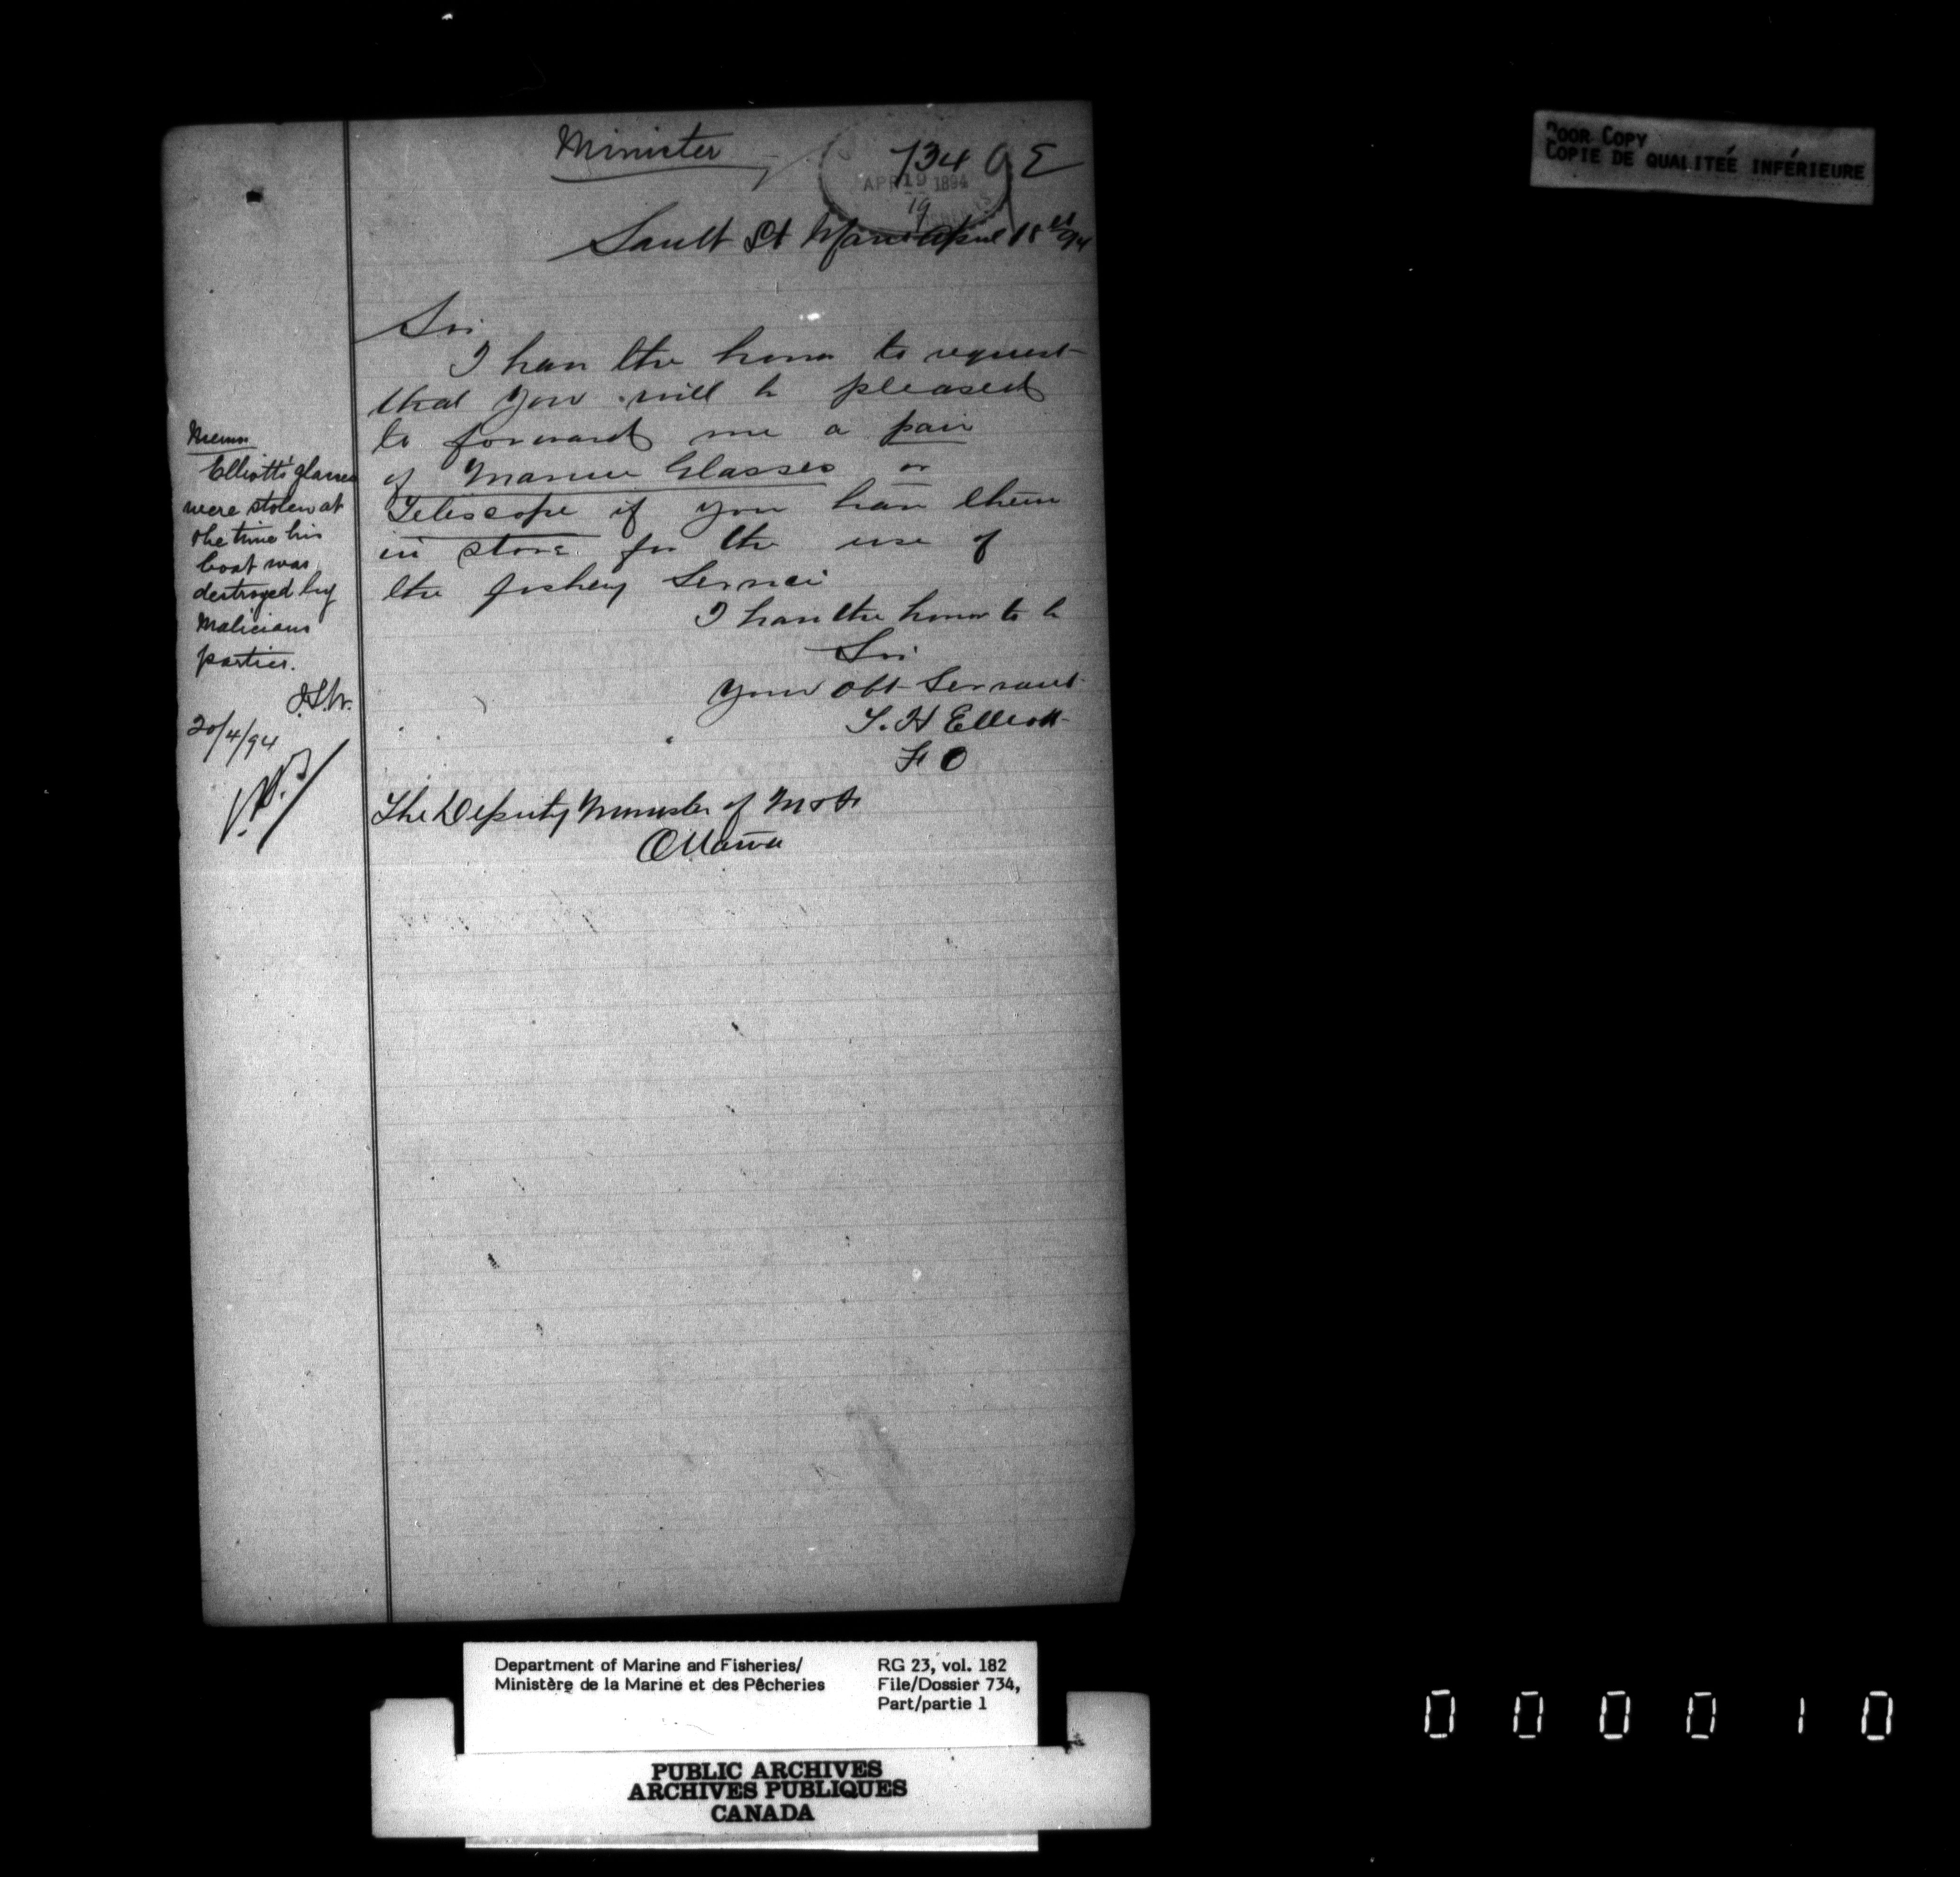 Minister
734 E
APR 19 1894
19
Sault St Marie April 18th 94
Sir
I have the honor to request
that you will be pleased
to forward me a pair
of Marine Glasses or
Telescope if you have them
in store for the use of
the fishery Service
I have the honor to be
Sir
Your Obt Servant
T. H Elliott
F O
The Deputy Minister of M & F
Ottawa
Memo
Elliott's glasses
were stolen at
the time his
boat was
destroyed by
Malicious
parties.
20/4/94
POOR COPY
COPIE DE QUALITEÉ INFÉRIEURE
Department of Marine and Fisheries/
Ministère de la Marine et des Pêcheries
RG 23, vol. 182
File/Dossier 734,
Part/partie 1
PUBLIC ARCHIVES
ARCHIVES PUBLIQUES
CANADA
000010